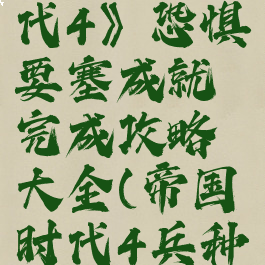 代4》恐惧
要塞成就
完成攻略
大全(帝国
时代4兵种